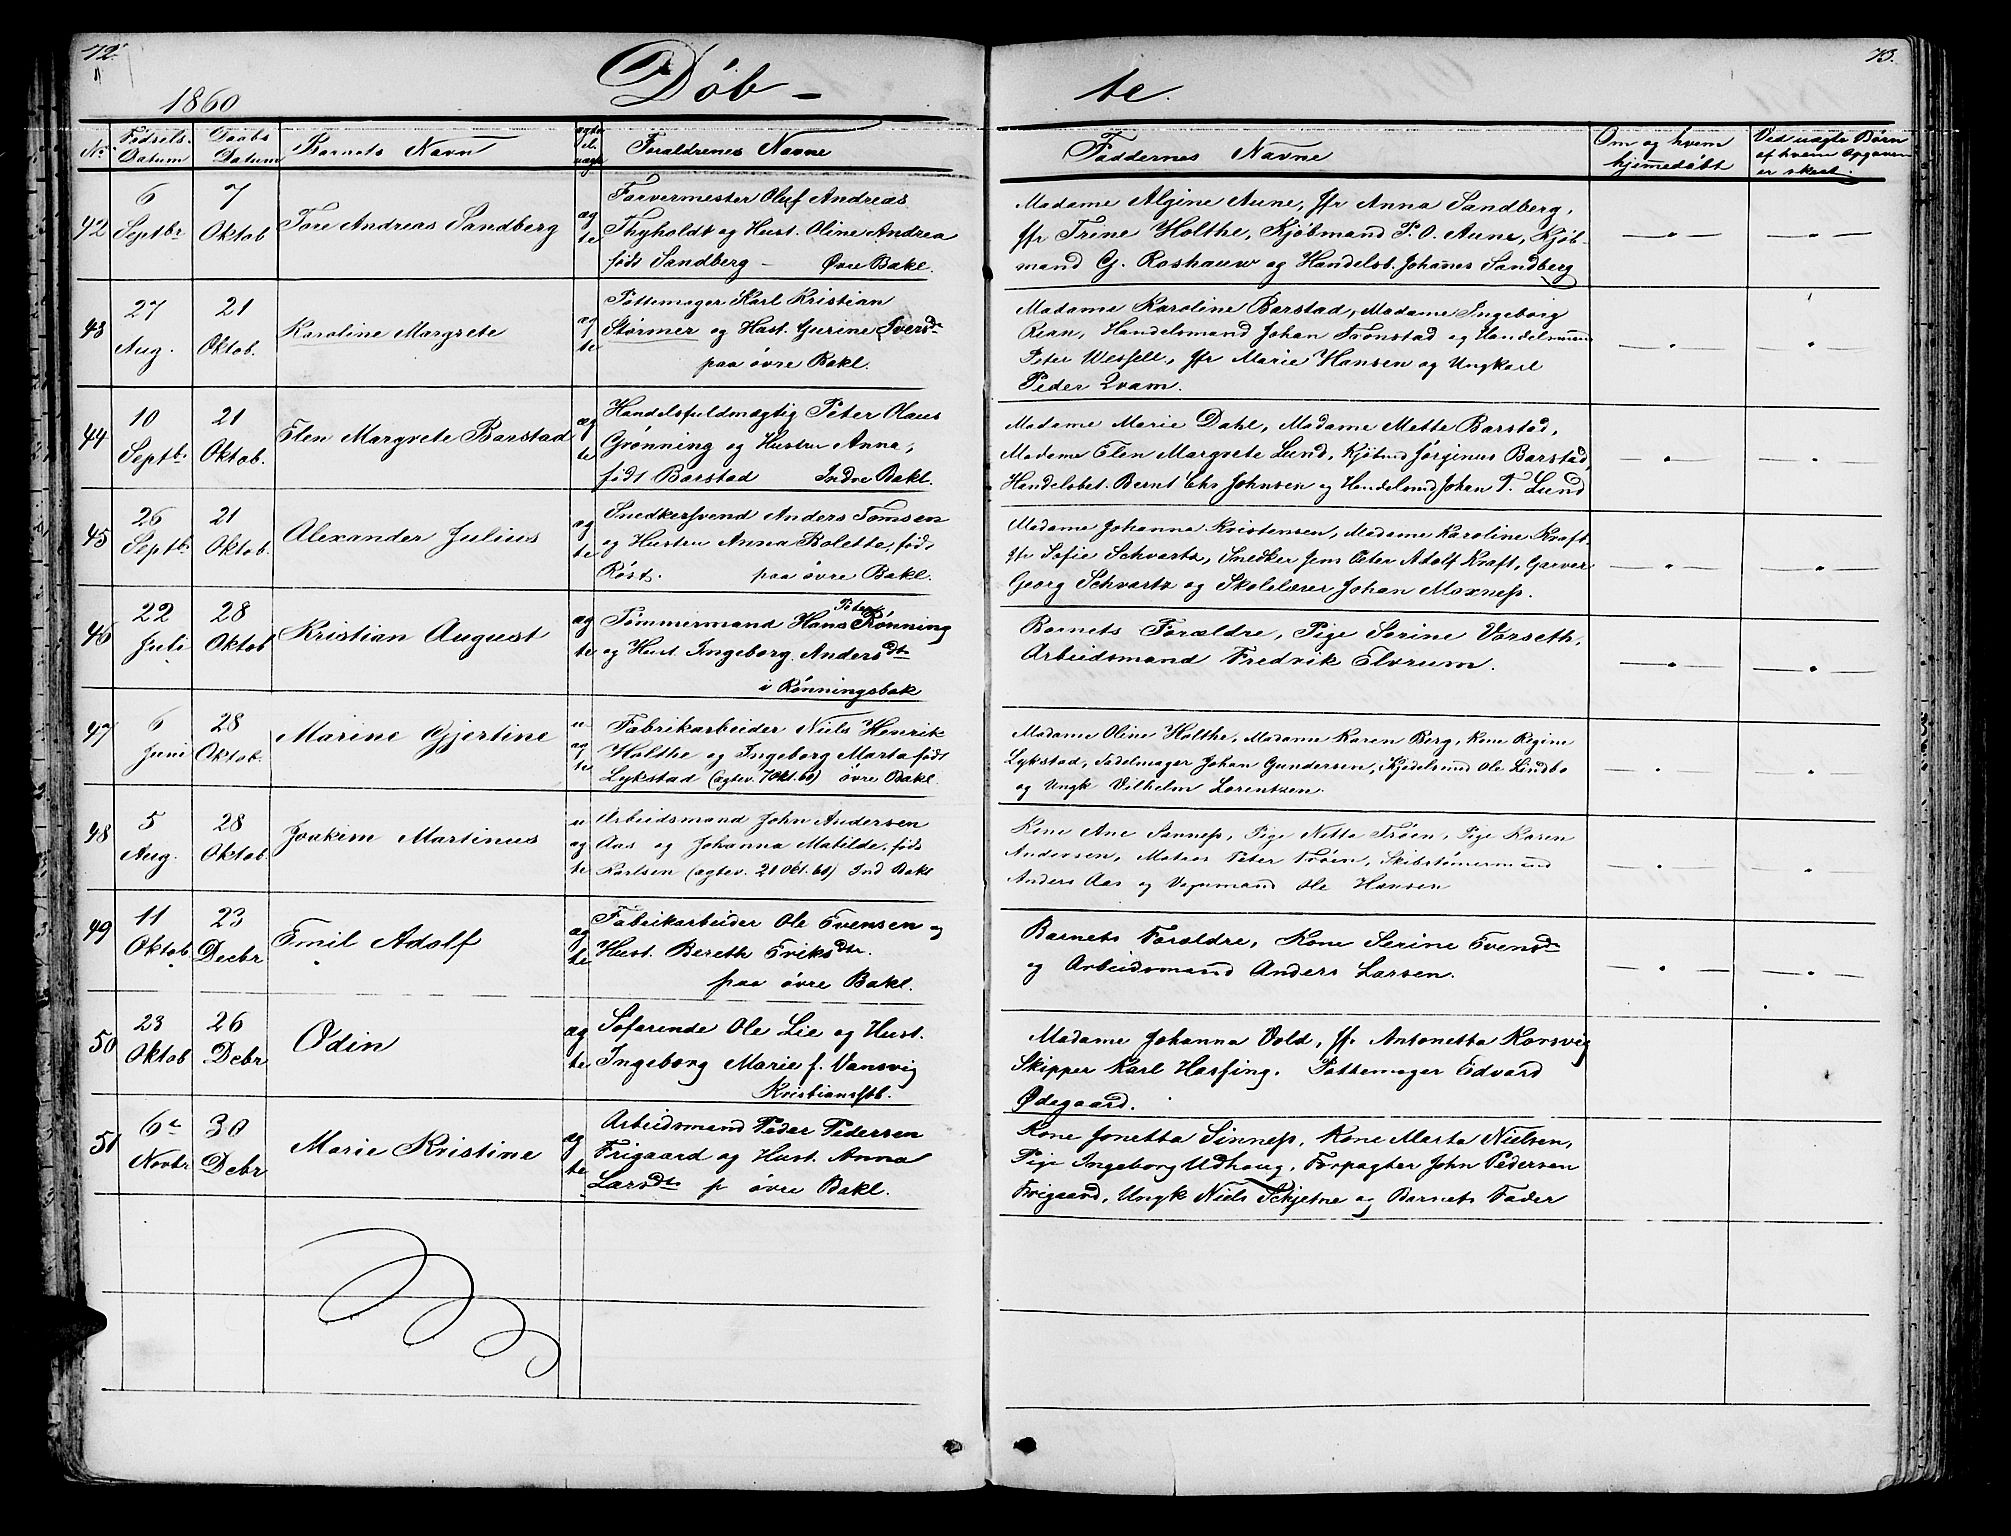 72.
1860
Døb-
No.
Fødsels-
Datum
Daabs
Datum
Barnets Navn
ægte
el.
uægte
Foraldrenes Navne
42
6
Septbr
7
Oktob
Tore Andreas Sandberg
æg
te
Farvermester Oluf Andreas
Thyholdt og Hust. Oline Andrea
født Sandberg - Øvre Bakl.
43
27
Aug.
21
Oktob.
Karoline Margrete
æg
te
Pottemager Karl Kristian
Størmer og Hust. Gurine Iversdr
paa øvre Bakl.
44
10
Septbr
21
Oktob.
Elen Margrete Barstad
æg
te
Handelsfuldmægtig Peter Olaus
Grønning og Hustru Anna,
født Barstad Indre Bakl.
45
26
Septbr
21
Oktob.
Alexander Julius
æg
te
Snedkersvend Anders Tomsen
og Hustru Anna Boletta, født
Røst. paa øvre Bakl.
46
22
Juli
28
Oktob
Kristian August
æg
te
Tømmermand Hans Peter Rønning
og Hust. Ingeborg Andersdtr
i Rønningsbak
47
6
Juni
28
Oktob.
Marine Gjertine
u
æg
te
Fabrikarbeider Niels Henrik
Holthe og Ingeborg Marta født
Lykstad (ægtev. 7 Okt. 60) øvre Bakl.
48
5
Aug.
28
Oktob.
Joakim Martinus
u
æg
te
Arbeidsmand John Andersen
Aas og Johanna Matilde, født
Karlsen (ægtev. 21 Okt. 60) Ind Bakl
49
11
Oktob.
23
Decbr
Emil Adolf
æg
te
Fabrikarbeider Ole Evensen og
Hust. Bereth Eriksdtr.
paa øvre Bakl.
50
23
Oktob
26
Decbr
Odin
æg
te
Søfarende Ole Lie og Hust.
Ingeborg Marie f. Vansvig
Kristiansstb.
51
6te
Novbr
30
Decbr
Marie Kristine
æg
te
Arbeidsmand Peder Pedersen
Frigaard og Hust. Anna
Larsdtr p øvre Bakl.
73.
te.
Faddernes Navne
Om og hvem
hjemmedøbt
Ved uægte Børn
af hvem Opgaven
er skeet.
Madame Algine Aune, Jfr Anna Sandberg,
Jfr Trine Holthe, Kjøbmand P. O. Aune, Kjøb-
mand G. Roshauw og Handelsb. Johannes Sandberg
Madame Karoline Barstad, Madame Ingeborg
Rian, Handelsmand Johan Trønstad og Handelsmand
Peter Wessell, Jfr Marie Hansen og Ungkarl
Peder Qvam.
Madame Marie Dahl, Madame Mette Barstad,
Madame Elen Margrete Lund, Kjøbmd Jørginus Barstad,
Handelsbet. Bernt Ths Johnsen og Handelsmd Johan T. Lund
Madame Johanna Kristensen, Madame Karoline Kraft,
Jfr Sofie Schvartz, Snedker Jens Peter Adolf Kraft, Garver
Georg Schvartz og Skolelærer Johan Moxness.
Barnets Forældre, Pige Serine Vorseth,
Arbeidsmand Fredrik Elvrum.
Madame Oline Holthe, Madame Karen Berg, Kone Regine
Lykstad, Sadelmager Johan Gundersen, Kjedelsmed Ole Lindbo
og Ungk Vilhelm Lorentsen.
Kone Ane Sanness, Pige Netta Trøen, Pige Karen
Andersen, Matros Peter Trøen, Skibstømmermand
Anders Aas og Vognmand Ole Hansen
Barnets Forældre, Kone Serine Evensdr
og Arbeidsmand Anders Larsen.
Madame Johanna Vold, Jfr Antonetta Korsvig
Skipper Karl Hassing. Pottemager Edvard
Ødegaard.
Kone Jonetta Sinness, Kone Marta Nielsen,
Pige Ingeborg Udhaug, Forpagter John Pedersen
Frigaard, Ungk Niels Schjetne og Barnets Fader